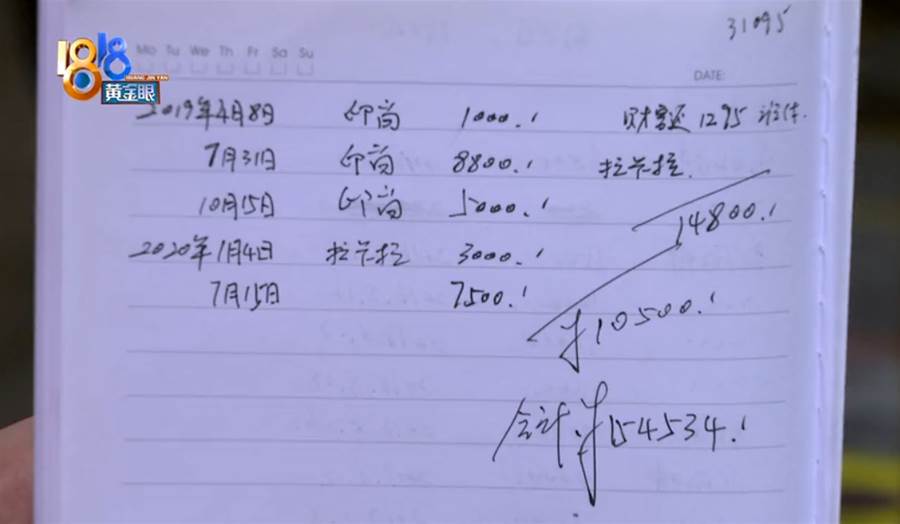 31095
1818
HUANG JIN YAN
黄金眼
Mo Tu We Th Fr Sa Su
DATE:
2019年4月8日 印尚 1000.' 财富还 1295
7月31日 印尚 8800.' 拉卡拉.
10月15日 印尚 5000.'
14800.'
2020年1月4日 拉卡拉 3000.'
7月15日 7500.'
¥10500.'
合计.¥154534.'